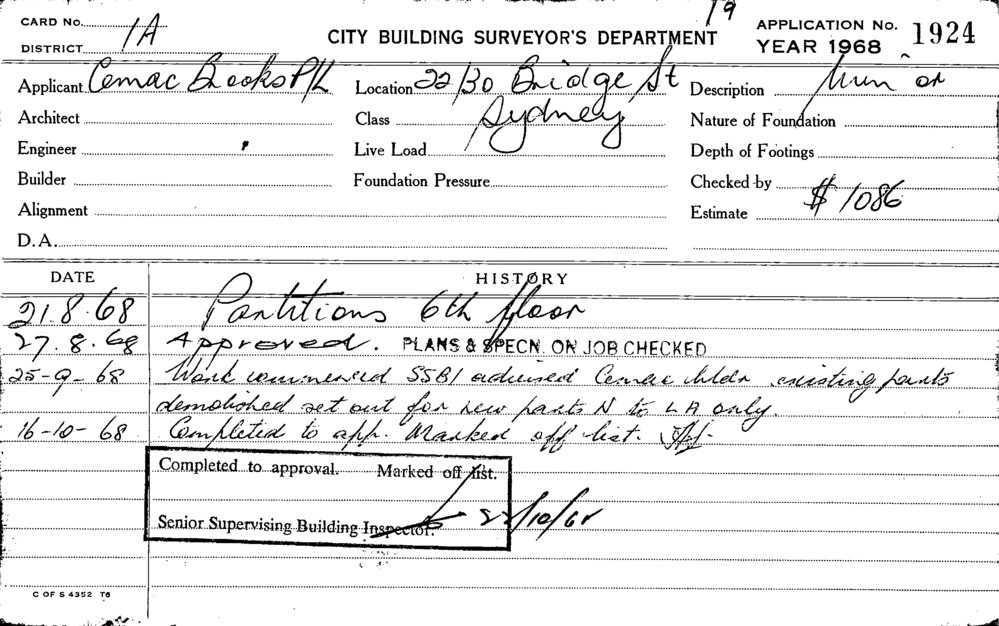 19
CARD No.
DISTRICT 1A
CITY BUILDING SURVEYOR'S DEPARTMENT
APPLICATION No. 1924
YEAR 1968
Applicant Cemac Brooks P/L
Location 22/30 Bridge St
Sydney
Description
Architect
Class
Nature of Foundation
Engineer
Live Load
Depth of Footings
Builder
Foundation Pressure
Checked by
Alignment
Estimate $1086
D.A.
DATE HISTORY
21.8.68 Partitions 6th floor
27.8.68 Approved. PLANS & SPECN. ON JOB CHECKED
25-9-68 Work commenced SSBI advised Cemac bldr existing parts
demolished set out for new parts N to LA only.
16-10-68 Completed to app. Marked off list.
Completed to approval. Marked off list.
Senior Supervising Building Inspector. /10/68
C OF S 4352 T6